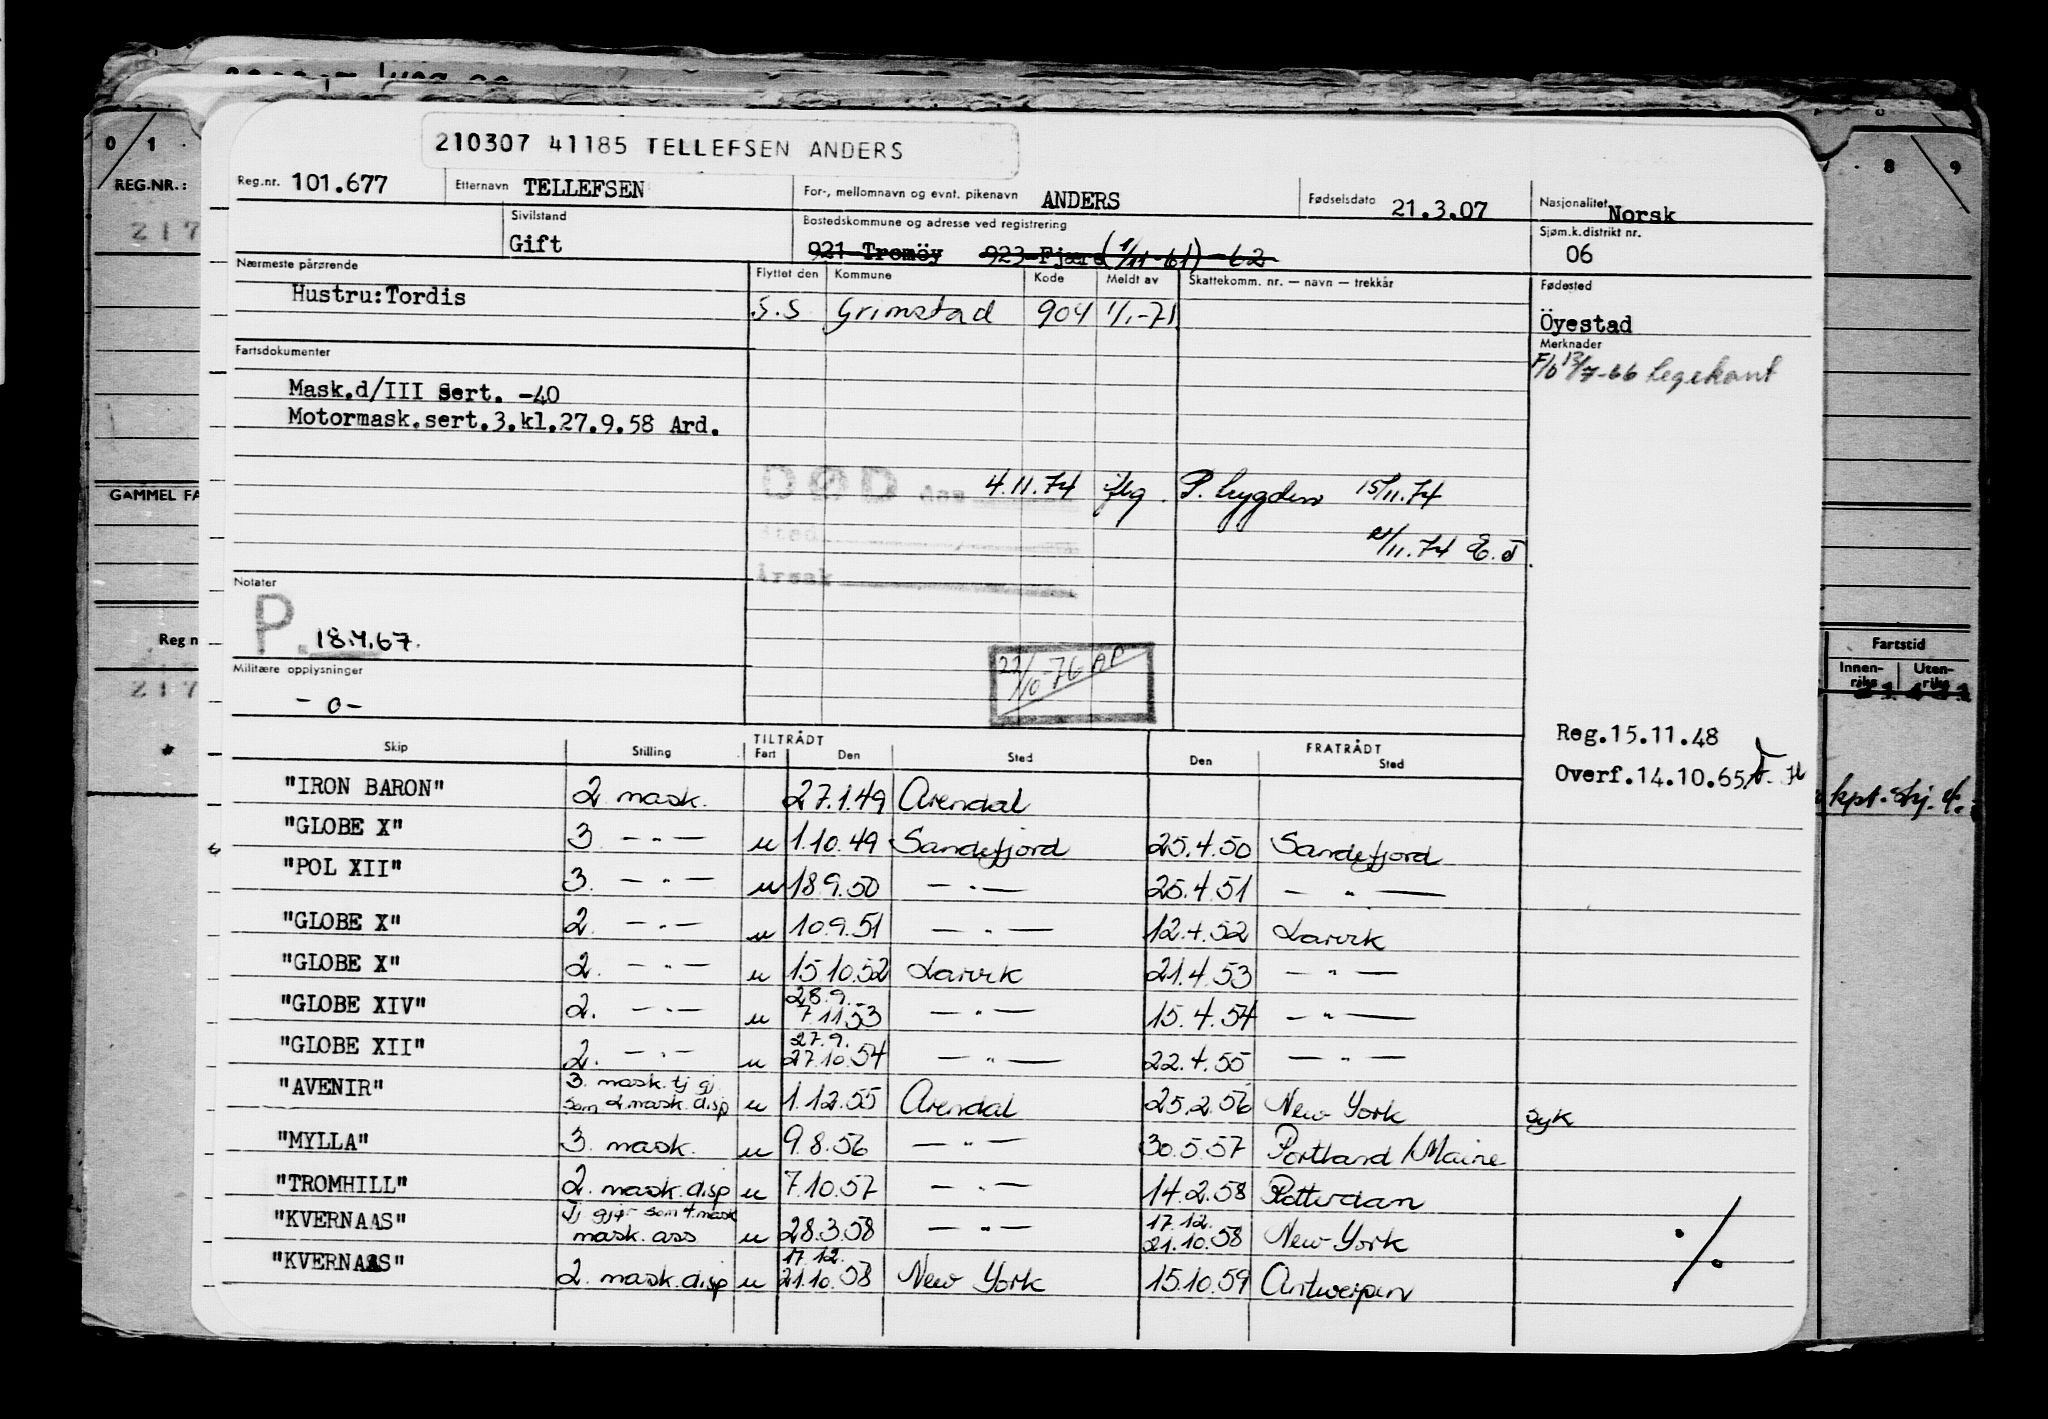 210307 41185 TELLEFSEN ANDERS
Reg.nr. 101.677 Etternavn TELLEFSEN For-, mellomnavn og evnt. pikenavn ANDERS Fødselsdato 21.3.07 Nasjonalitet Norsk
Sivilstand Gift Bostedskommune og adresse ved registrering 921 Tromöy 923 Fjære (1/11-61) -62 Sjøm.k.distrikt nr. 06
Nærmeste pårørende Flyttet den Kommune Kode Meldt av Skattekomm. nr. — navn — trekkår Fødested
Hustru:Tordis S.S Grimstad 904 1/1-71 Öyestad
Fartsdokumenter Merknader
F/b 13/7-66 Legekont
Mask.d/III Sert. -40
Motormask.sert.3.kl.27.9.58 Ard.
DØD den 4.11.74 flg. P. trygden 15/11.74
Sted 21/11.74 E.J
Årsak
Notater
P. 18.4.67.
22/10-76 AP
Militære opplysninger
- o -
Reg.15.11.48
Overf.14.10.65
Skip Stilling TILTRÅDT FRATRÅDT
Fart Den Sted Den Sted
"IRON BARON" 2 mask. 27.1.49 Arendal
"GLOBE X" 3 — " — u 1.10.49 Sandefjord 25.4.50 Sandefjord
"POL XII" 3. — " — u 18.9.50 — " — 25.4.51 — " —
"GLOBE X" 2. — " — u 10.9.51 — " — 12.4.52 Larvik
"GLOBE X" 2. — " — u 15.10.52 Larvik 21.4.53 — " —
"GLOBE XIV" 2. — " — u 28.9. 7.11.53 — " — 15.4.54 — " —
"GLOBE XII" 2. — " — u 27.9. 27.10.54 — " — 22.4.55 — " —
"AVENIR" 3. mask. tj gj. som 2.mask.disp u 1.12.55 Arendal 25.2.56 New York syk
"MYLLA" 3. mask. u 9.8.56 — " — 30.5.57 Portland /Maine
"TROMHILL" 2. mask.disp u 7.10.57 — " — 14.2.58 Rotterdam
"KVERNAAS" Tj gjør som 4.mask mask. ass u 28.3.58 — " — 17.12. 21.10.58 New York
"KVERNAAS" 2. mask.disp u 17.12. 21.10.58 New York 15.10.59 Antwerpen
./.
0 1
REG.NR.:
217
GAMMEL FA
Reg n
217
*
8 9
Fartstid
Innen-riks Uten-riks